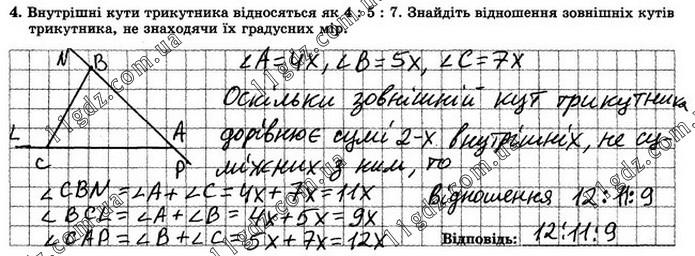 4. Внутрішні кути трикутника відносяться як 4 : 5 : 7. Знайдіть відношення зовнішніх кутів
трикутника, не знаходячи їх градусних мір.
N
B
L
C
A
P
∠A = 4x, ∠B = 5x, ∠C = 7x
Оскільки зовнішній кут трикутника
дорівнює сумі 2-х внутрішніх, не су
міжних з ним, то
∠CBN = ∠A + ∠C = 4x + 7x = 11x
∠BCL = ∠A + ∠B = 4x + 5x = 9x
∠CAP = ∠B + ∠C = 5x + 7x = 12x
Відношення 12 : 11 : 9
Відповідь: 12 : 11 : 9
11gdz.com.ua